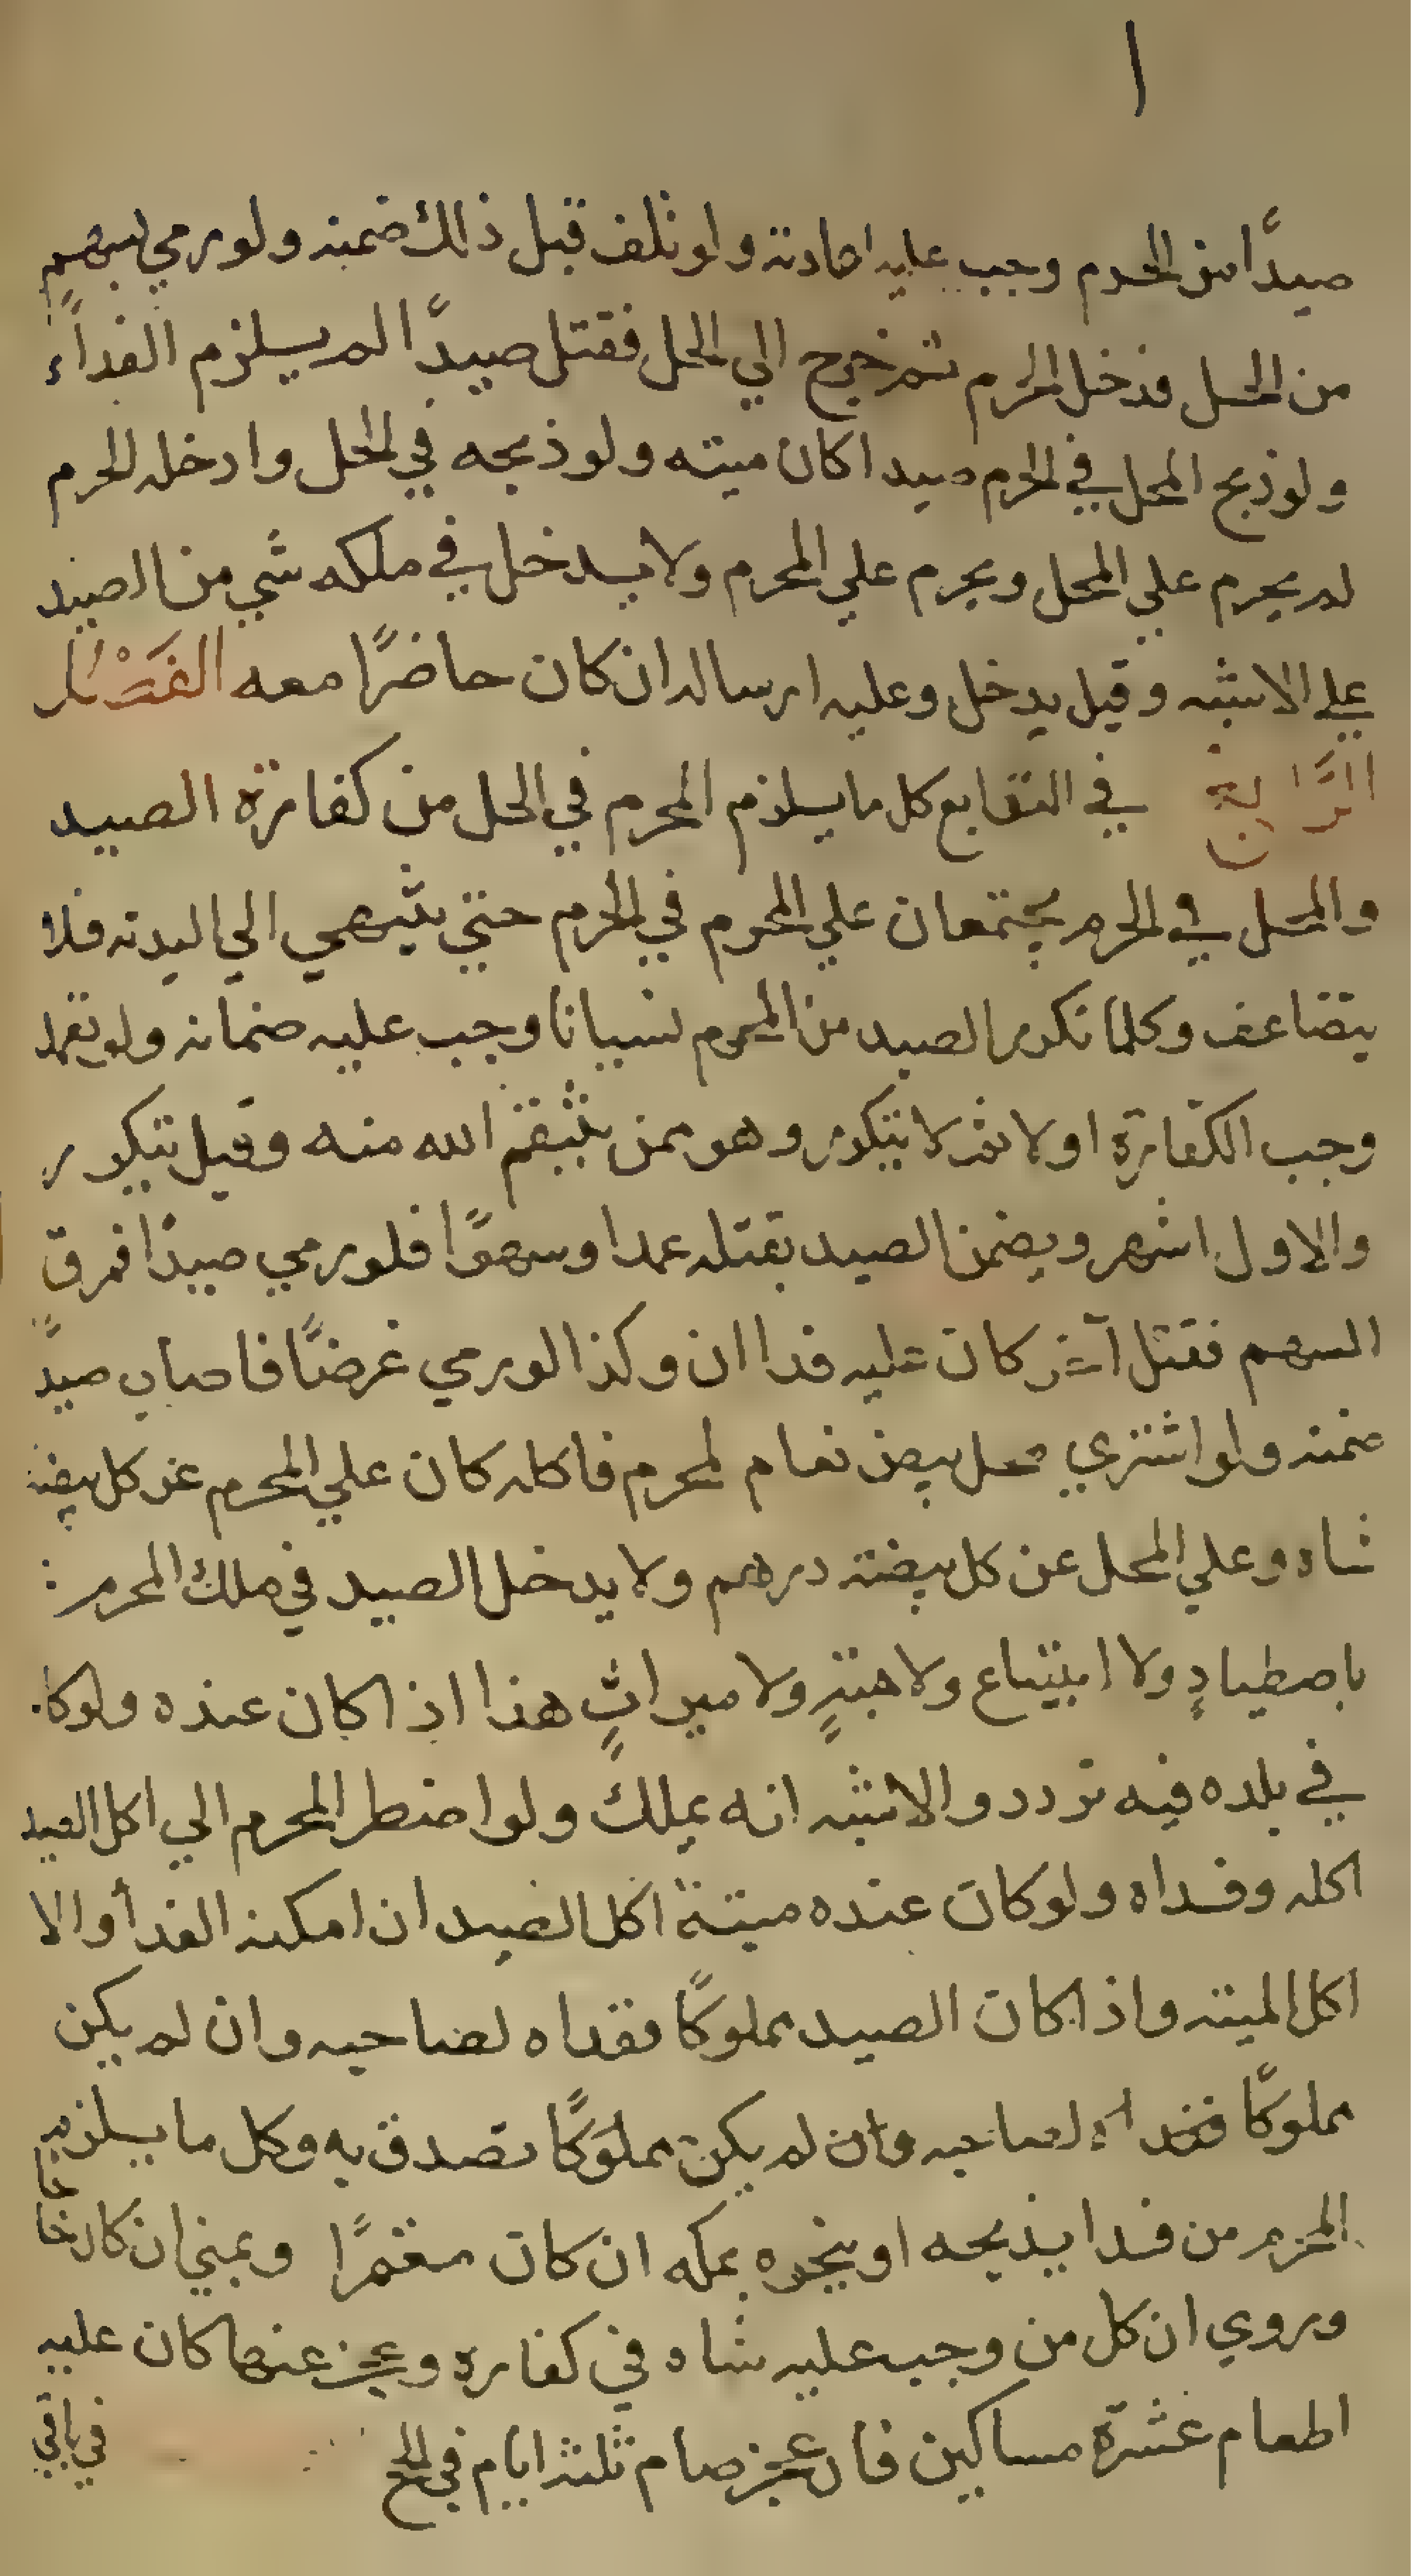 ١
صيدًا من الحرم وجب عليه اعادته ولو تلف قبل ذلك ضمنه ولو رمي بسهمٍ
من الحل فدخل الحرم ثم خرج الي الحل فقتل صيدًا لم يلزم الفداًء
ولو ذبح المحل في الحرم صيدا كان ميته ولو ذبحه في المحل وادخله الحرم
لم يحرم علي المحل ويحرم علي المحرم ولا يدخل في ملكه شي من الصيد
علي الاشبه وقيل يدخل وعليه ارساله ان كان حاضرًا معه الفَصْل
الرَّابع في التوابع كل ما يلزم المحرم في الحل من كفارة الصيد
والمحل في الحرم يجتمعان علي المحرم في الحرم حتي ينتهي الي البدنه فلا
يتضاعف وكلما تكرر الصيد من المحرم نسيانا وجب عليه ضمانه ولو تعمد
وجب الكفارة اولا ثم لا يتكرر وهو ممن ينتقم الله منه وقيل يتكرر
والاول اشهر ويضمن الصيد بقتله عمدا وسهوًا فلو رمي صيدًا فمرق
السهم فقتل آخر كان عليه فداان وكذا لو رمي غرضًا فاصاب صيدً
ضمنه ولو اشتري محل بيض نعام لمحرم فاكله كان علي المحرم عن كل بيضه
شاه وعلي المحل عن كل بيضته درهم ولا يدخل الصيد في ملك المحرم
باصطيادٍ ولا ابتياع ولا هبتهٍ ولا ميراثٍ هذا اذا كان عنده ولو كا
في بلده فيه تردد والاشبه انه يملك ولو اضطر المحرم الي اكل الصيد
اكله وفداه ولو كان عنده ميتة اكل الصيد ان امكنه الفدأ والا
اكل الميته واذا كان الصيد مملوكًا ففداه لصاحبه وان لم يكن
مملوكًا ففداه لصاحبه وان لم يكن مملوكًا تصدق به وكل ما يلزم
المحرم من فدا يذبحه او ينحره بمكه ان كان معتمرًا وبمني ان كان حا
وروي ان كل من وجب عليه شاه في كفاره وعجز عنها كان عليه
اطعام عشرة مساكين فان عجز صام ثلثه ايام في الحج
في باقي